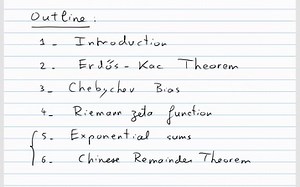 Outline:
1- Introduction
2- Erdős-Kac Theorem
3- Chebychev Bias
4- Riemann zeta function
5- Exponential sums
6- Chinese Remainder Theorem